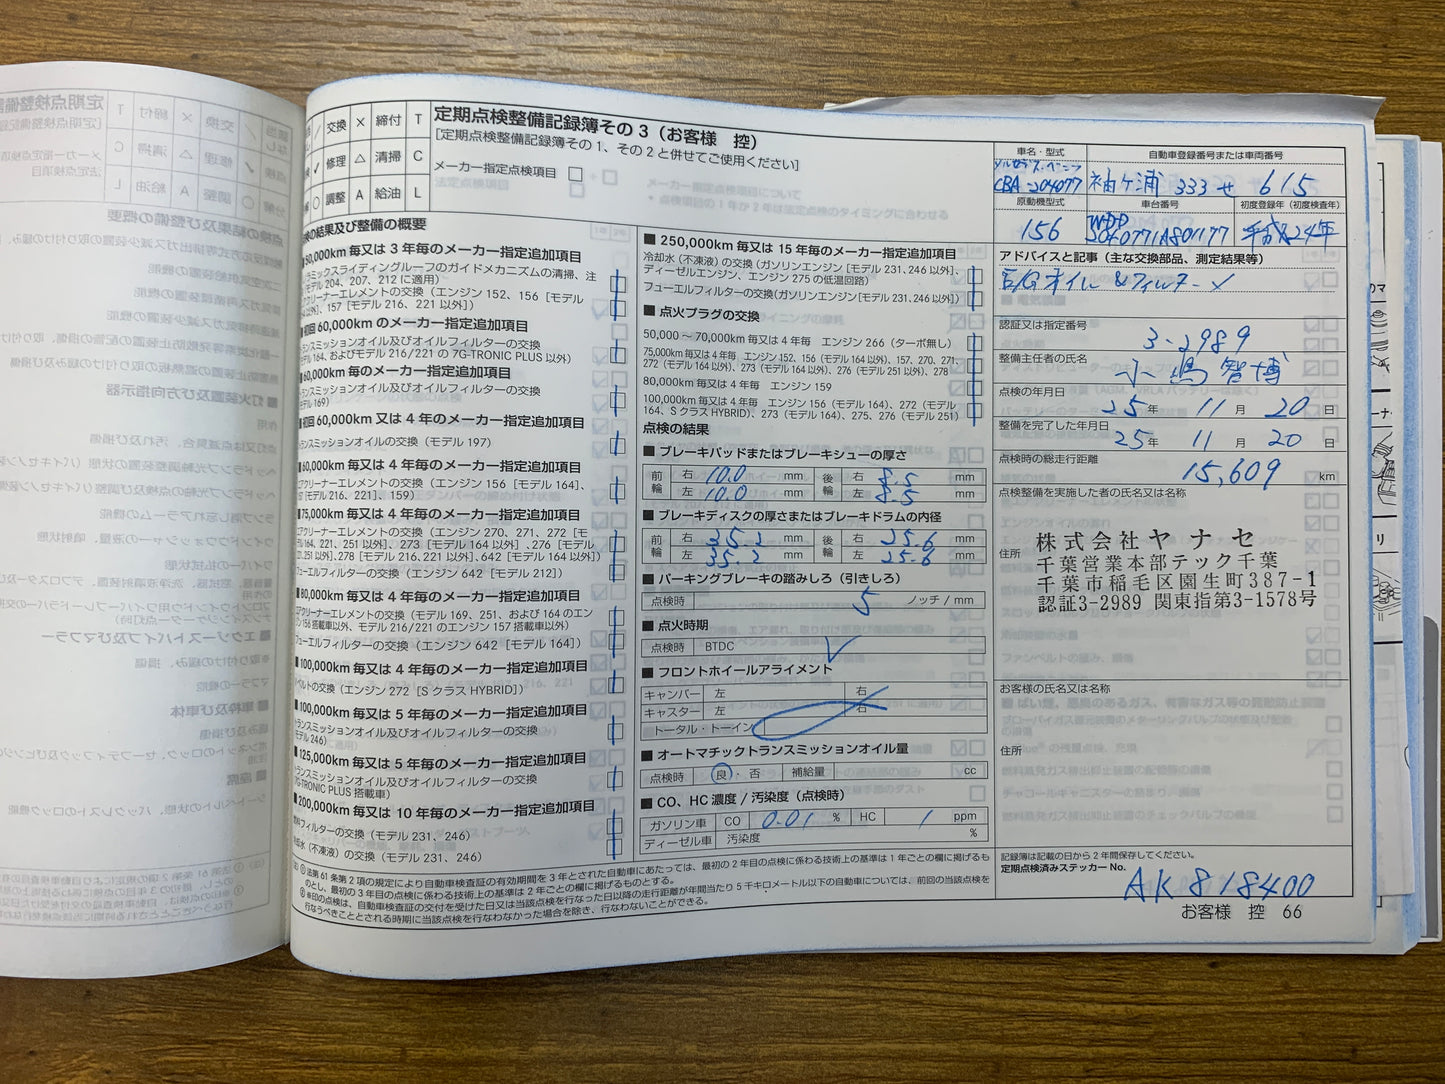 交換 × 締付 T
✓ 修理 △ 清掃 C
○ 調整 A 給油 L
定期点検整備記録簿その3（お客様 控）
[定期点検整備記録簿その1、その2と併せてご使用ください]
メーカー指定点検項目
の結果及び整備の概要
000km 毎又は 3 年毎のメーカー指定追加項目
ミックスライディングルーフのガイドメカニズムの清掃、注
モデル 204、207、212 に適用）
クリーナーエレメントの交換（エンジン 152、156［モデル
以外］、157［モデル 216、221 以外］）
初回 60,000km のメーカー指定追加項目
ンスミッションオイル及びオイルフィルターの交換
デル 164、およびモデル 216/221 の 7G-TRONIC PLUS 以外）
60,000km 毎のメーカー指定追加項目
ンスミッションオイル及びオイルフィルターの交換
デル 169）
初回 60,000km 又は 4 年毎のメーカー指定追加項目
ンスミッションオイルの交換（モデル 197）
■ 60,000km 毎又は 4 年毎のメーカー指定追加項目
アクリーナーエレメントの交換（エンジン 156［モデル 164］、
［モデル 216、221］、159）
■ 75,000km 毎又は 4 年毎のメーカー指定追加項目
アクリーナーエレメントの交換（エンジン 270、271、272［モ
デル 164、221、251 以外］、273［モデル 164 以外］、276［モデル
、251 以外］、278［モデル 216、221 以外］、642［モデル 164 以外］）
フューエルフィルターの交換（エンジン 642［モデル 212］）
■ 80,000km 毎又は 4 年毎のメーカー指定追加項目
エアクリーナーエレメントの交換（モデル 169、251、および 164 のエン
ジン 156 搭載車以外、モデル 216/221 のエンジン 157 搭載車以外）
フューエルフィルターの交換（エンジン 642［モデル 164］）
■ 100,000km 毎又は 4 年毎のメーカー指定追加項目
ベルトの交換（エンジン 272［S クラス HYBRID］）
■ 100,000km 毎又は 5 年毎のメーカー指定追加項目
トランスミッションオイル及びオイルフィルターの交換
モデル 246）
■ 125,000km 毎又は 5 年毎のメーカー指定追加項目
トランスミッションオイル及びオイルフィルターの交換
7G-TRONIC PLUS 搭載車）
■ 200,000km 毎又は 10 年毎のメーカー指定追加項目
燃料フィルターの交換（モデル 231、246）
冷却水（不凍液）の交換（モデル 231、246）
■ 250,000km 毎又は 15 年毎のメーカー指定追加項目
冷却水（不凍液）の交換（ガソリンエンジン［モデル 231、246 以外］、
ディーゼルエンジン、エンジン 275 の低温回路）
フューエルフィルターの交換（ガソリンエンジン［モデル 231、246 以外］）
■ 点火プラグの交換
50,000 ～ 70,000km 毎又は 4 年毎 エンジン 266（ターボ無し）
75,000km 毎又は 4 年毎 エンジン 152、156（モデル 164 以外）、157、270、271、
272（モデル 164 以外）、273（モデル 164 以外）、276（モデル 251 以外）、278
80,000km 毎又は 4 年毎 エンジン 159
100,000km 毎又は 4 年毎 エンジン 156（モデル 164）、272（モデル
164、S クラス HYBRID）、273（モデル 164）、275、276（モデル 251）
点検の結果
■ ブレーキパッドまたはブレーキシューの厚さ
前輪 右 10.0 mm 後輪 右 8.5 mm
左 10.0 mm 左 8.5 mm
■ ブレーキディスクの厚さまたはブレーキドラムの内径
前輪 右 35.2 mm 後輪 右 25.6 mm
左 35.2 mm 左 25.6 mm
■ パーキングブレーキの踏みしろ（引きしろ）
点検時 5 ノッチ / mm
■ 点火時期
点検時 BTDC ✓
■ フロントホイールアライメント
キャンバー 左 右
キャスター 左 右
トータル・トーイン
■ オートマチックトランスミッションオイル量
点検時 良・否 補給量 cc
■ CO、HC 濃度 / 汚染度（点検時）
ガソリン車 CO 0.01 % HC 1 ppm
ディーゼル車 汚染度 %
車名・型式 自動車登録番号または車両番号
メルセデス・ベンツ
CBA-204077 袖ヶ浦 333 せ 615
原動機型式 車台番号 初度登録年（初度検査年）
156 WDD2040771A801177 平成24年
アドバイスと記事（主な交換部品、測定結果等）
E/Gオイル & フィルター ×
認証又は指定番号
3-2989
整備主任者の氏名
小嶋 智博
点検の年月日
25 年 11 月 20 日
整備を完了した年月日
25 年 11 月 20 日
点検時の総走行距離
15,609 km
点検整備を実施した者の氏名又は名称
株式会社ヤナセ
住所 千葉営業本部テック千葉
千葉市稲毛区園生町387-1
認証3-2989 関東指第3-1578号
お客様の氏名又は名称
住所
記録簿は記載の日から 2 年間保存してください。
定期点検済みステッカー No.
AK 818400
(注) ① 法第 61 条第 2 項の規定により自動車検査証の有効期間を 3 年とされた自動車にあたっては、最初の 2 年目の点検に係わる技術上の基準は 1 年ごとの欄に掲げるも
のとし、最初の 3 年目の点検に係わる技術上の基準は 2 年ごとの欄に掲げるものとする。
② ※印の点検は、自動車検査証の交付を受けた日又は当該点検を行なった日以降の走行距離が年間当たり 5 千キロメートル以下の自動車については、前回の当該点検を
行なうべきこととされる時期に当該点検を行なわなかった場合を除き、行なわないことができる。
お客様 控 66